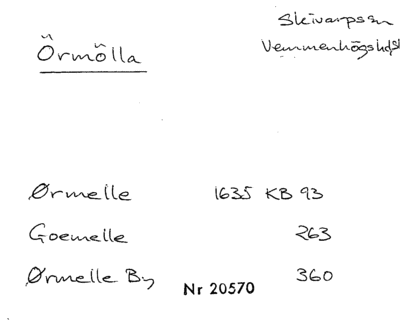 Skivarpssn
Örmölla
Vemmenhögshd
Ørmelle 1635 KB 93
Goemelle 263
Ørmelle By 360
Nr 20570